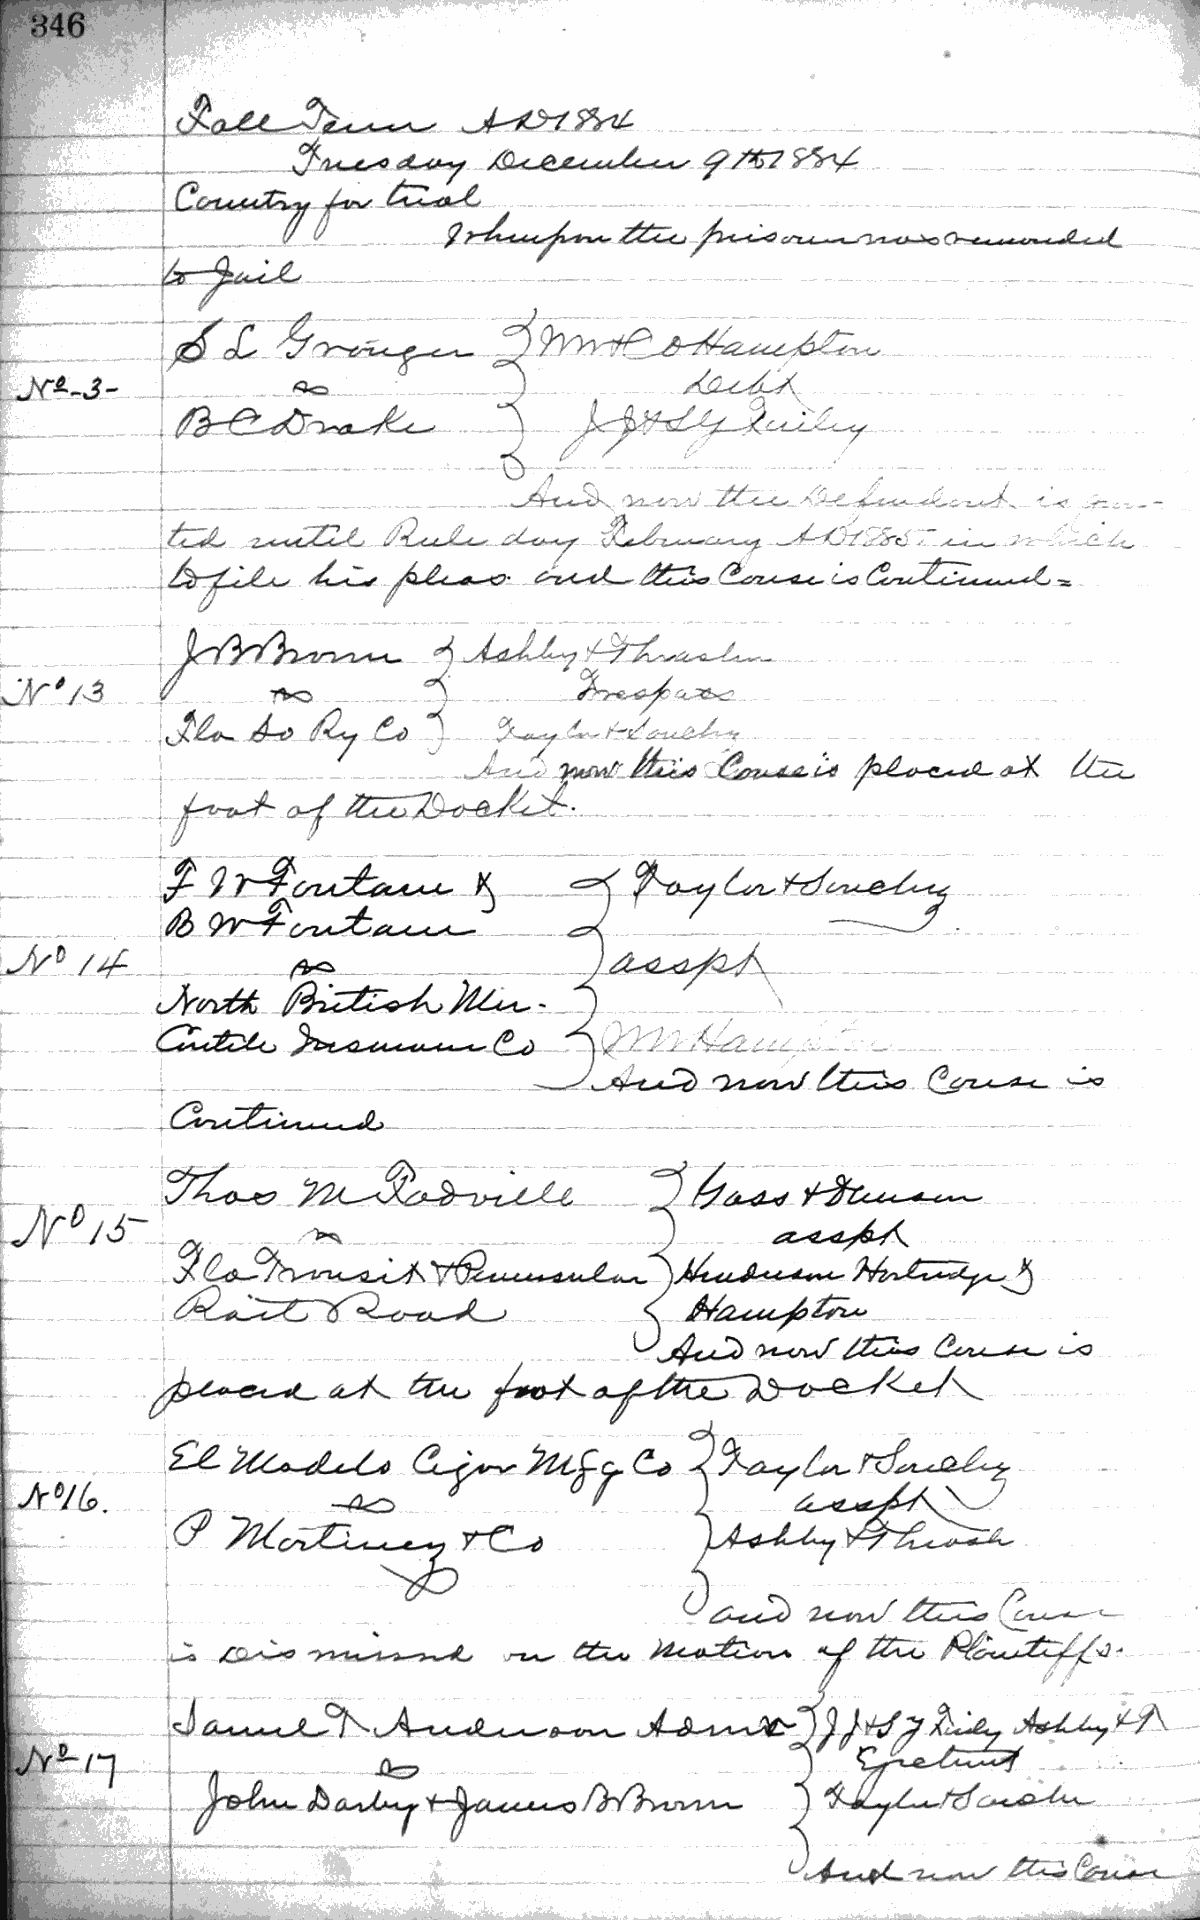 346
Fall Term AD 1884
Tuesday December 9th 1884
Country for trial
Whereupon the prisoner was remanded
to Jail
S L Granger } Wm & C O Hampton
No - 3 - vs Debt
B C Drake } J J & S Y Finley
And now the Defendant is gran-
ted until Rule day February AD 1885 in which
to file his pleas and this Cause is Continued =
J B Brown } Ashby & Thrasher
No 13 vs Trespass
Fla So Ry Co } Taylor & Sanchez
And now this Cause is placed at the
foot of the Docket.
F W Fontain & } Taylor & Sanchez
B W Fontain
No 14 vs asspt
North British Mer-
Cantile Insurance Co } Wm Hampton
And now this Cause is
Continued
Thos M } Goss & Dawson
No 15 vs asspt
Fla Transit & Peninsular } Henderson Hartridge &
Rail Road } Hampton
And now this Cause is
placed at the foot of the Docket
El Modelo Cigar Mfg Co } Taylor & Sanchez
No 16. vs asspt
P Martinez & Co } Ashby & Thrash
and now this Cause
is Dismissed on the Motion of the Plaintiffs.
Samuel T Anderson Admr } J J & S Y Finley Ashby & T
No 17 vs Ejectment
John Darby & James B Brown } Taylor & Sanchez
And now this Cause